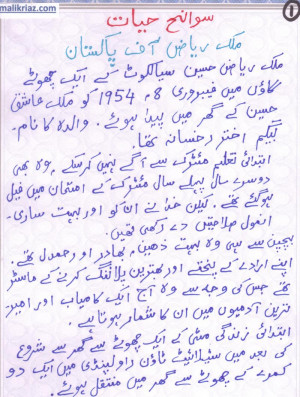 malikriaz.com
1
سوانح حیات
ملک ریاض آف پاکستان
ملک ریاض حسین سیالکوٹ کے ایک چھوٹے
گاؤں میں فیبروری 8، 1954 کو ملک عاشق
حسین کے گھر میں پیدا ہوئے. والدہ کا نام-
بیگم اختر رخسانہ تھا.
ابتدائی تعلیم میٹرک سے آگے نہیں کرسکے. وہ بھی
دوسرے سال پہلے سال میٹرک کے امتحان میں فیل
ہوگئے تھے. لیکن خدا نے ان کو اور بہت ساری-
انمول صلاحیتیں دے رکھی تھیں.
بچپن سے ہی وہ بہت ذھین، بھادر اور رحمدل تھے.
اپنے ارادے کے پختے اور بھترین پلاننگ کرنے کے ماسٹر
تھے جس کی وجہ سے وہ آج ایک کامیاب اور امیر-
ترین آدمیوں میں ان کا شمار ہوتا ہے.
ابتدائی زندگی مٹی کے ایک چھوٹے سے گھر سے شروع
کی بعد میں سیٹلائیٹ ٹاؤن راولپنڈی میں ایک دو
کمرے کے چھوٹے سے گھر میں منتقل ہوئے.